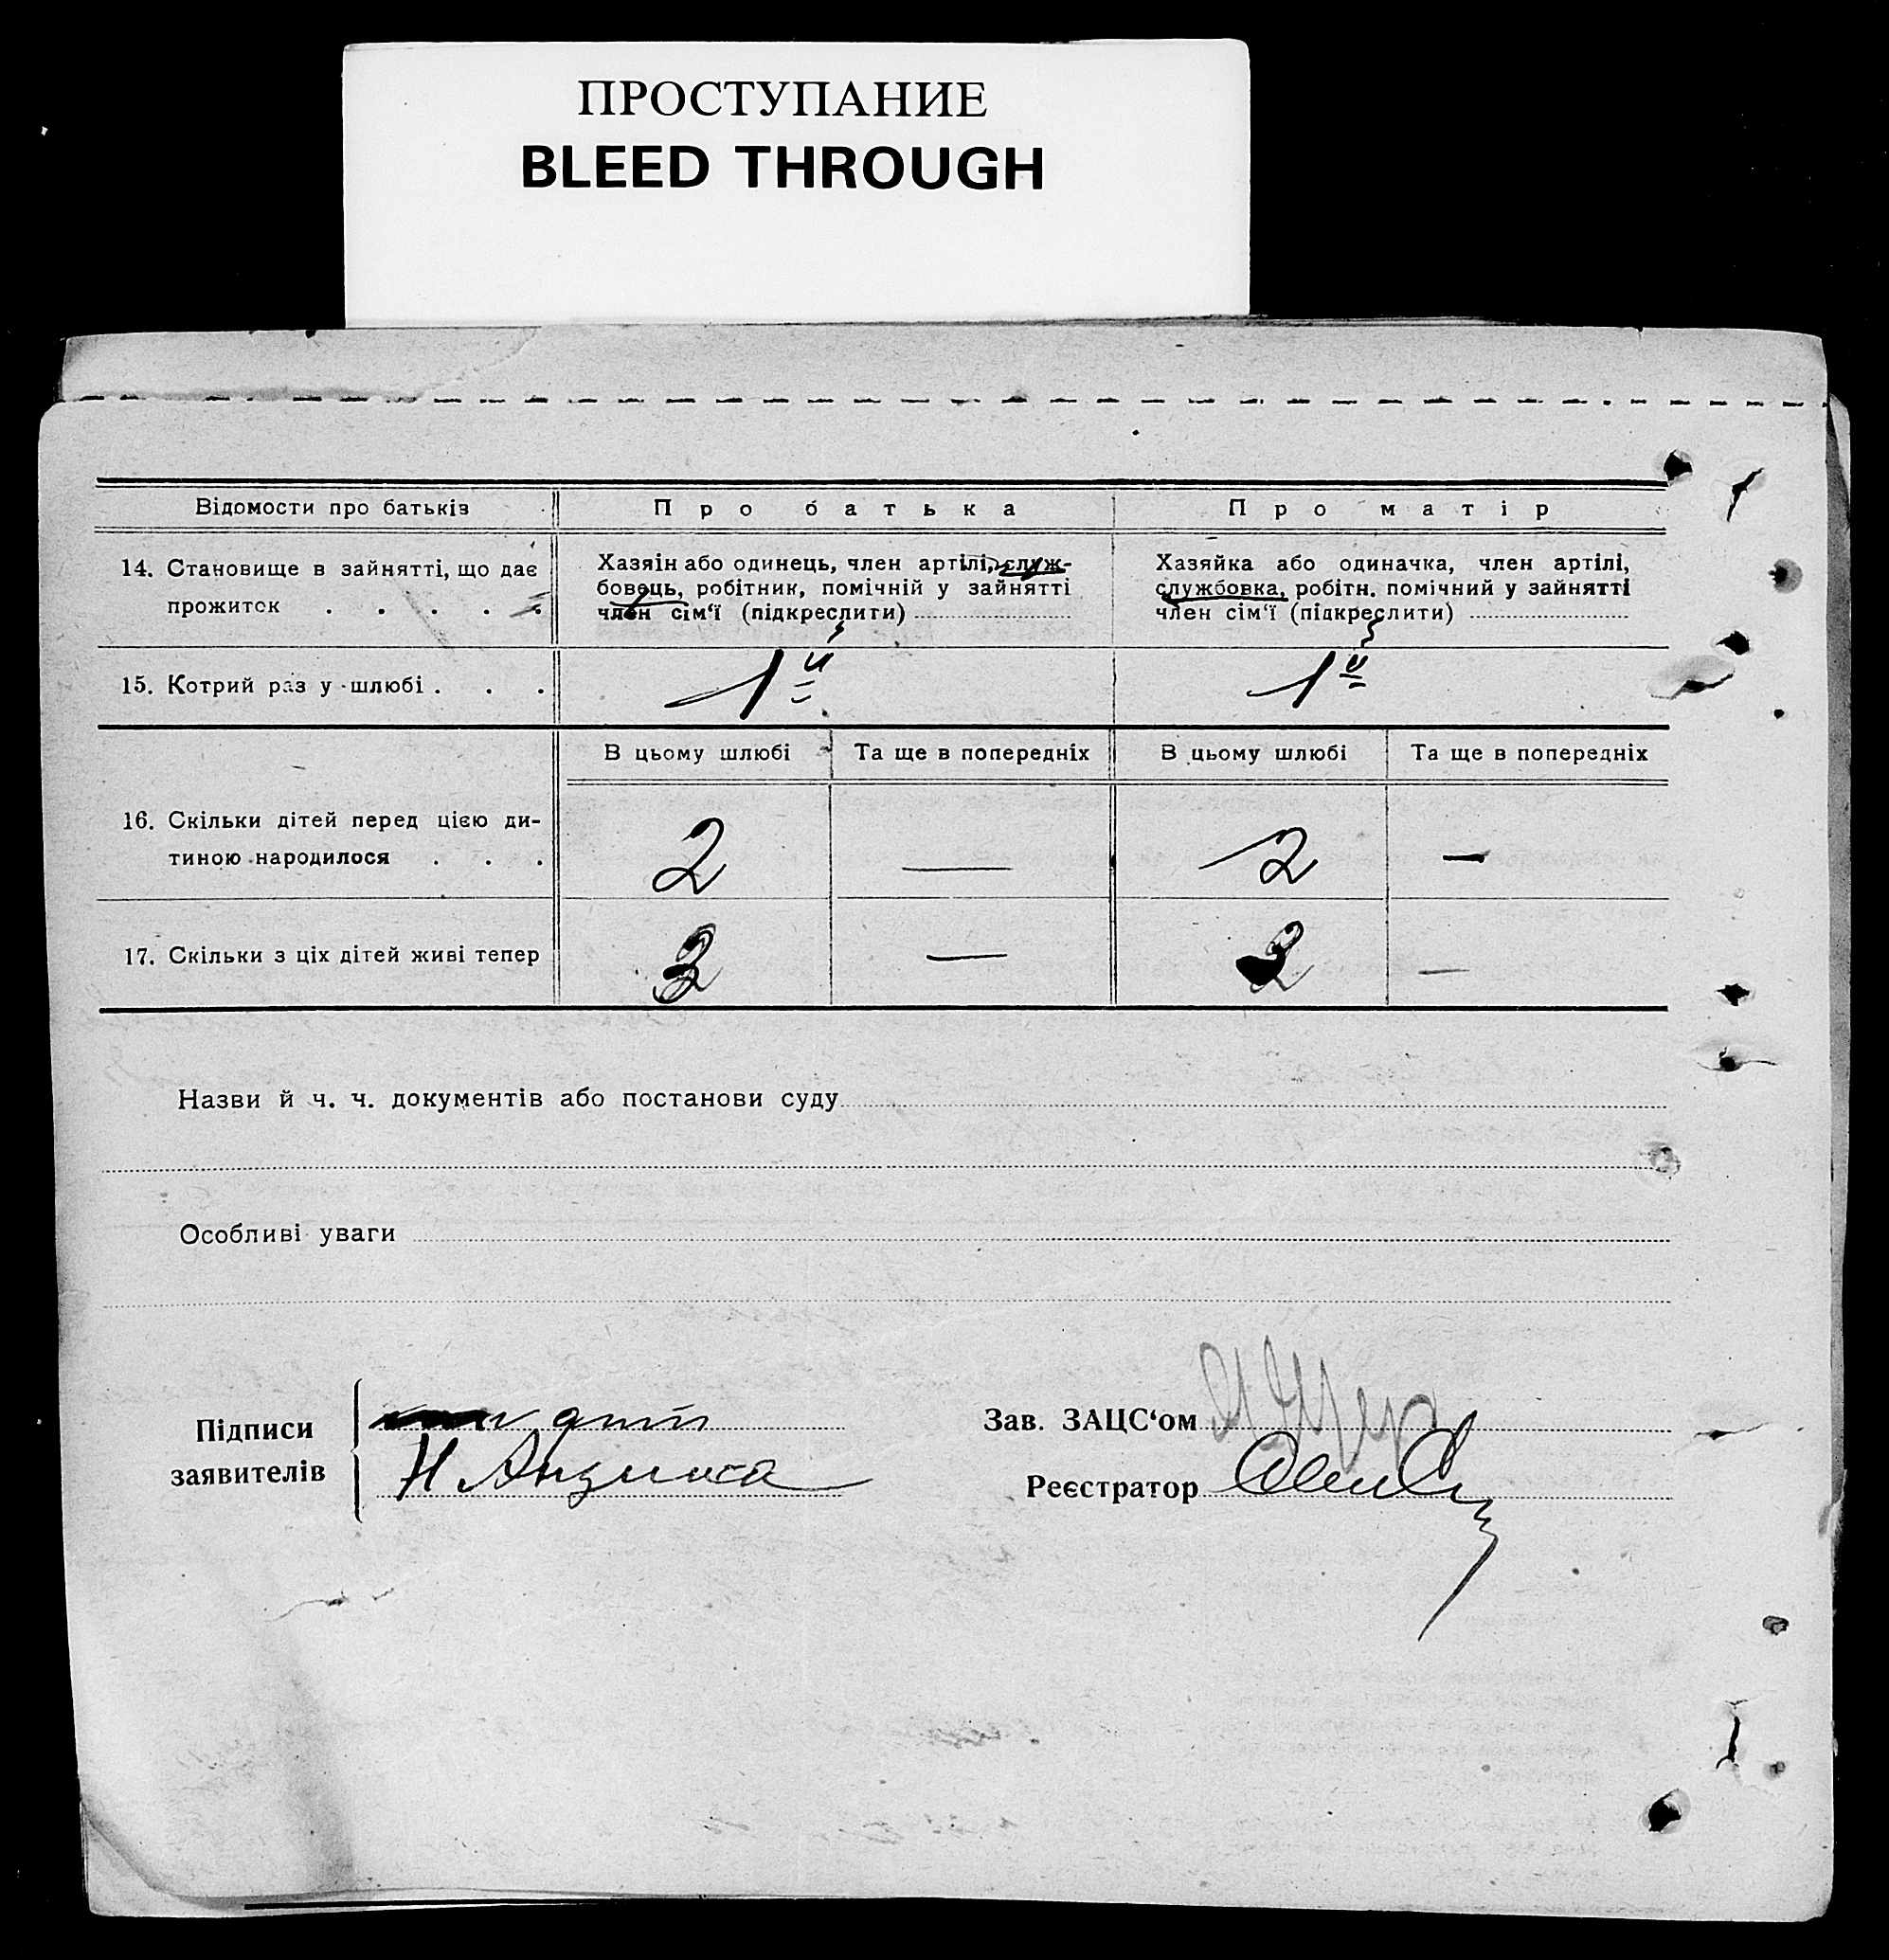 ПРОСТУПАНИЕ
BLEED THROUGH
Відомости про батьків
Про батька
Про матір
14. Становище в зайнятті, що дає
прожиток . . . . .
Хазяін або одинець, член артілі, служ-
бовець, робітник, помічній у зайнятті
член сім'ї (підкреслити)
Хазяйка або одиначка, член артілі,
службовка, робітн. помічний у зайнятті
член сім'ї (підкреслити)
15. Котрий раз у шлюбі . . . 1й 1й
В цьому шлюбі Та ще в попередніх В цьому шлюбі Та ще в попередніх
16. Скільки дітей перед цією ди-
тиною народилося . . . 2 — 2 —
17. Скільки з ціх дітей живі тепер 3 — —
Назви й ч. ч. документів або постанови суду
Особливі уваги
Підписи
заявителів
Зав. ЗАЦС'ом
Реєстратор